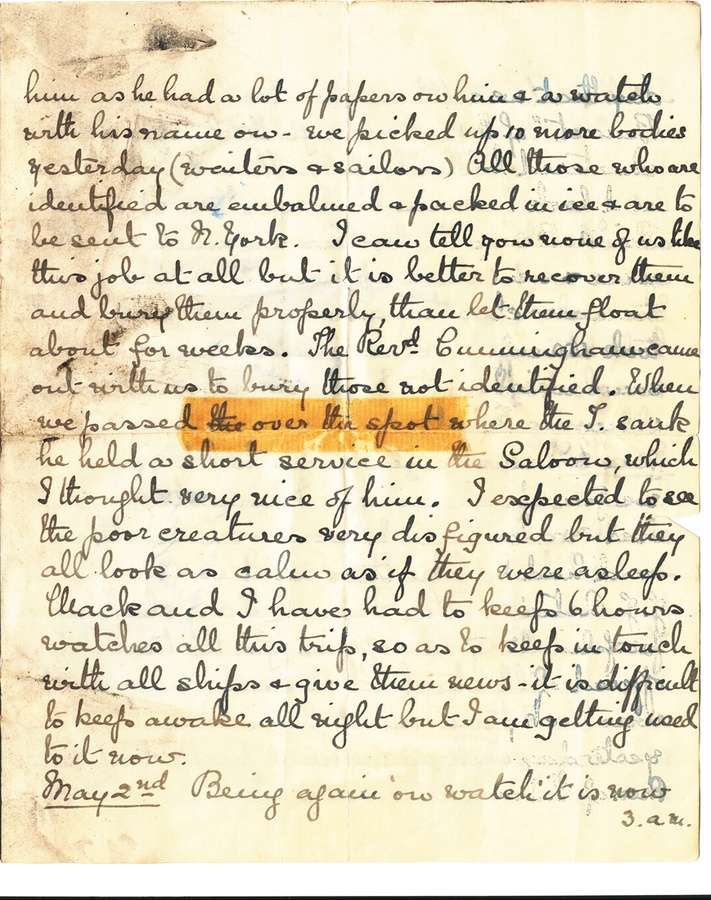 him as he had a lot of papers on him & a watch
with his name on - we picked up 10 more bodies
yesterday (waiters & sailors) All those who are
identified are embalmed & packed in ice & are to
be sent to N. York. I can tell you none of us like
this job at all but it is better to recover them
and bury them properly, than let them float
about for weeks. The Revd. Cunningham came
out with us to bury those not identified. When
we passed the over the spot where the T. sank
he held a short service in the Saloon, which
I thought very nice of him. I expected to see
the poor creatures very disfigured but they
all look as calm as if they were asleep.
Mack and I have had to keep 6 hours
watches all this trip, so as to keep in touch
with all ships & give them news - it is difficult
to keep awake all night but I am getting used
to it now.
May 2nd Being again 'on watch' it is now
3. a.m.